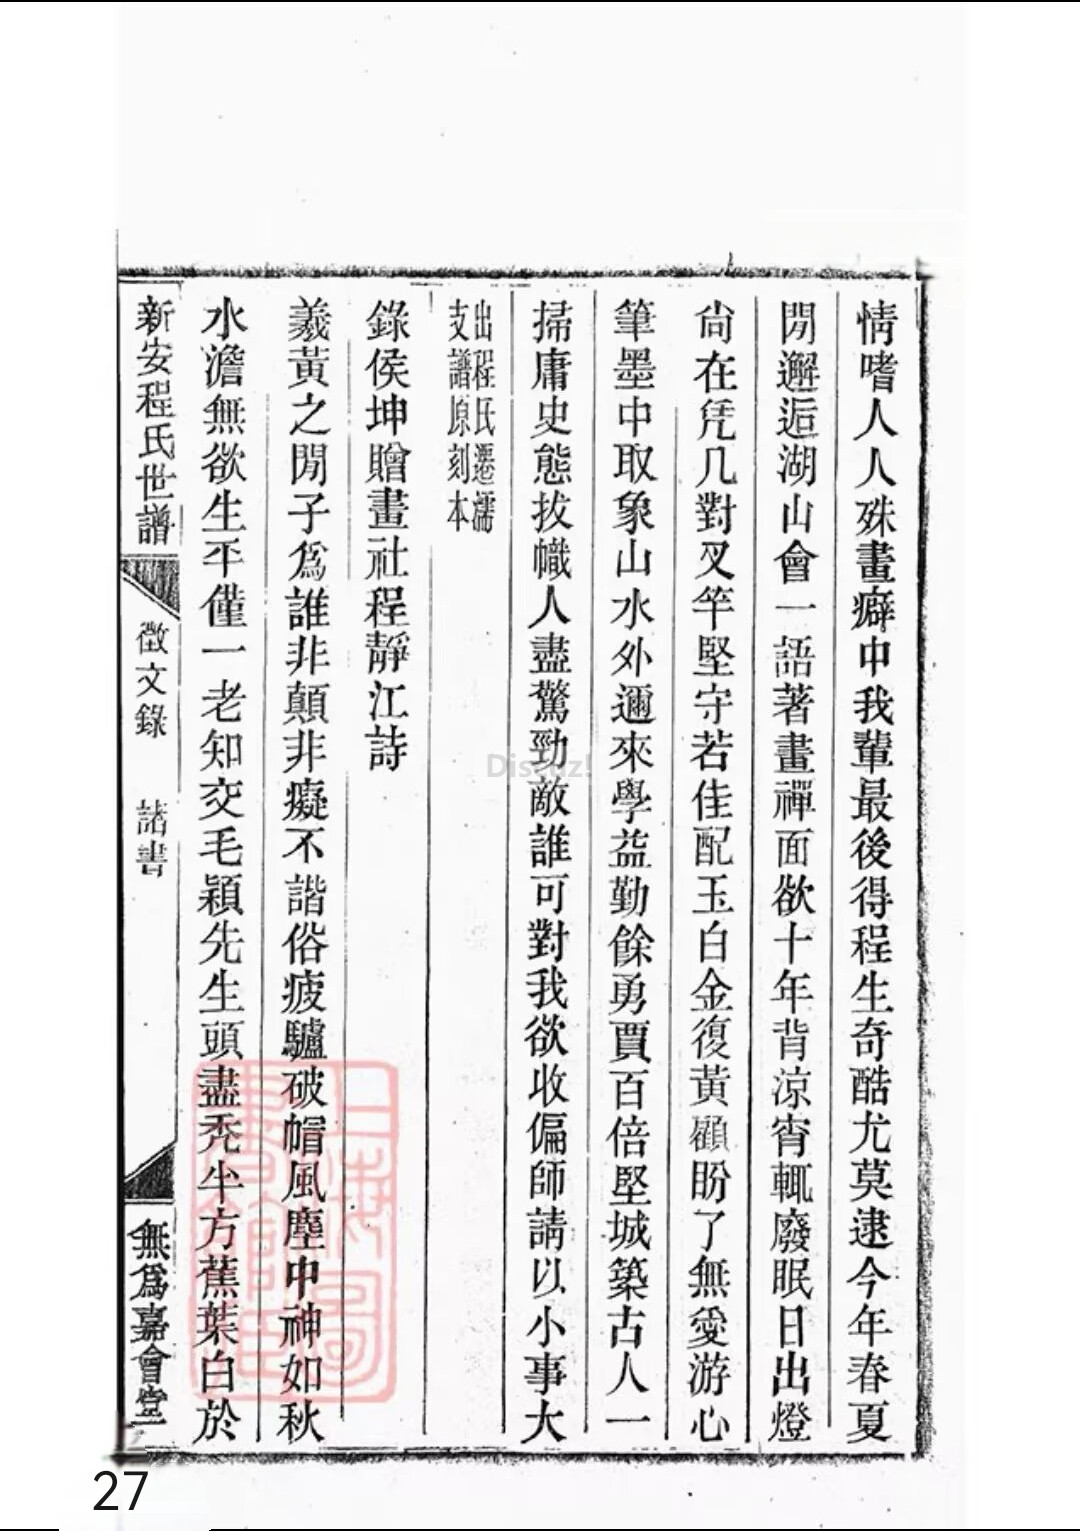 情嗜人人殊畫癖中我輩最後得程生奇酷尤莫逮今年春夏
閒邂逅湖山會一語著畫禪面欲十年背涼宵輒廢眠日出燈
尙在凭几對叉竿堅守若佳配玉白金復黃顧盼了無愛游心
筆墨中取象山水外邇來學益勤餘勇賈百倍堅城築古人一
掃庸史態拔幟人盡驚勁敵誰可對我欲收偏師請以小事大
出程氏遷濡
支譜原刻本
錄侯坤贈畫社程靜江詩
羲黃之閒子爲誰非顛非癡不諧俗疲驢破帽風塵中神如秋
水澹無欲生平僅一老知交毛穎先生頭盡禿半方蕉葉白於
新安程氏世譜
徵文錄 諸書
無爲嘉會堂
上海圖書館藏
Discuz!
27